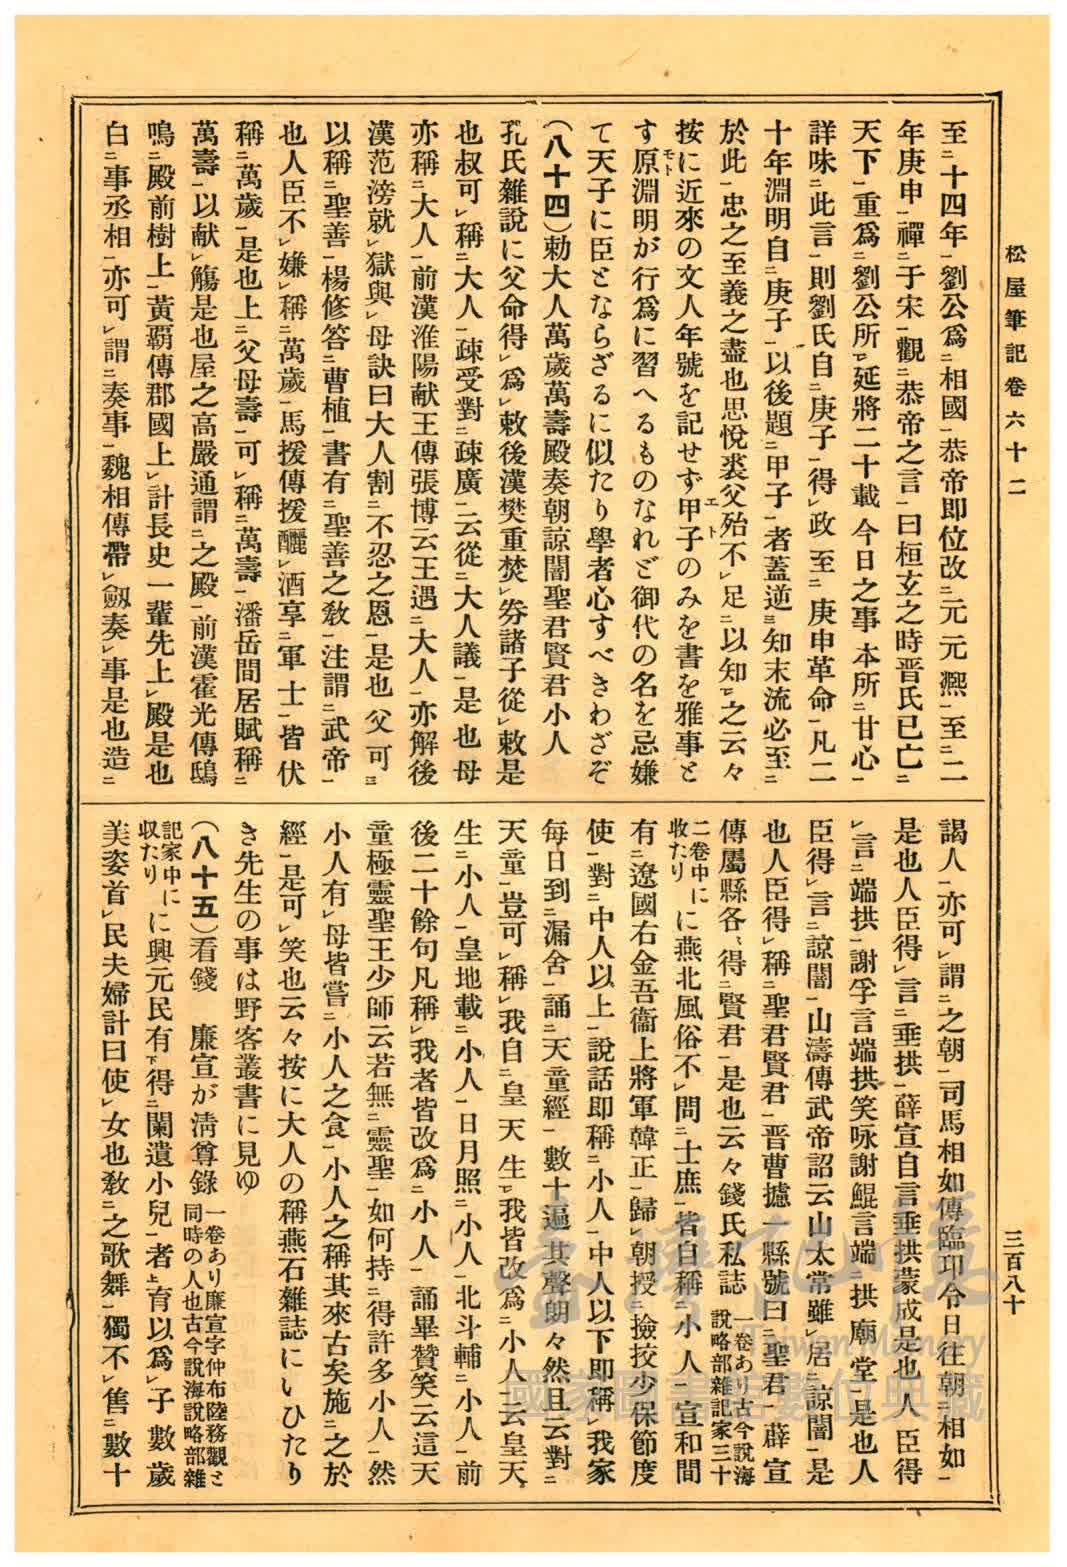 松屋筆記卷六十二
三百八十
至二十四年一劉公爲二相國一恭帝卽位改二元元熙一至二二
年庚申一禪二于宋一觀二恭帝之言一曰桓玄之時晋氏已亡二
天下一重爲二劉公所一レ延將二十載今日之事本所二甘心一
詳味二此言一則劉氏自二庚子一得レ政至二庚申革命一凡二
十年淵明自二庚子一以後題二甲子一者蓋逆三知末流必至二
於此一忠之至義之盡也思悅裘父殆不レ足二以知一レ之云々
按に近來の文人年號を記せず甲子のみを書を雅事と
す原淵明が行爲に習へるものなれど御代の名を忌嫌
て天子に臣とならざるに似たり學者心すべきわざぞ
（八十四）勅大人萬歲萬壽殿奏朝諒闇聖君賢君小人
孔氏雜說に父命得レ爲レ敕後漢樊重焚レ券諸子從レ敕是
也叔可レ稱二大人一疎受對二疎廣一云從二大人議一是也母
亦稱二大人一前漢淮陽献王傳張博云王遇二大人一亦解後
漢范滂就レ獄與レ母訣曰大人割二不忍之恩一是也父可三
以稱二聖善一楊修答二曹植一書有二聖善之敎一注謂二武帝一
也人臣不レ嫌レ稱二萬歲一馬援傳援釃レ酒享二軍士一皆伏
稱二萬歲一是也上二父母壽一可レ稱二萬壽一潘岳閒居賦稱二
萬壽一以献レ觴是也屋之高嚴通謂二之殿一前漢霍光傳鴟
鳴二殿前樹上一黃覇傳郡國上レ計長史一輩先上レ殿是也
白二事丞相一亦可レ謂二奏事一魏相傳帶レ劔奏レ事是也造二
謁人一亦可レ謂二之朝一司馬相如傳臨卭令日往朝二相如一
是也人臣得レ言二垂拱一薛宣自言垂拱蒙成是也人臣得
レ言二端拱一謝孚言端拱笑咏謝鯤言端二拱廟堂一是也人
臣得レ言二諒闇一山濤傳武帝詔云山太常雖レ居二諒闇一是
也人臣得レ稱二聖君賢君一晋曹攄一縣號曰二聖君一薛宣
傳屬縣各〻得二賢君一是也云々錢氏私誌一卷あり古今說海說略部雜記家三十
二卷中に收たりに燕北風俗不レ問二士庶一皆自稱二小人一宣和間
有二遼國右金吾衞上將軍韓正一歸レ朝授二撿挍少保節度
使一對二中人以上一說話卽稱二小人一中人以下卽稱レ我家
每日到二漏舍一誦二天童經一數十遍其聲朗々然且云對二
天童一豈可レ稱レ我自二皇天生一レ我皆改爲二小人一云皇天
生二小人一皇地載二小人一日月照二小人一北斗輔二小人一前
後二十餘句凡稱レ我者皆改爲二小人一誦畢贊笑云這天
童極靈聖王少師云若無二靈聖一如何持二得許多小人一然
小人有レ母皆嘗二小人之食一小人之稱其來古矣施二之於
經一是可レ笑也云々按に大人の稱燕石雜誌にいひたり
き先生の事は野客叢書に見ゆ
（八十五）看錢　廉宣が淸尊錄一卷あり廉宣字仲布陸務觀と同時の人也古今說海說略部雜
記家中に收たりに興元民有下得二闌遺小兒一者上育以爲レ子數歲
美姿首レ民夫婦計曰使レ女也敎二之歌舞一獨不レ售二數十